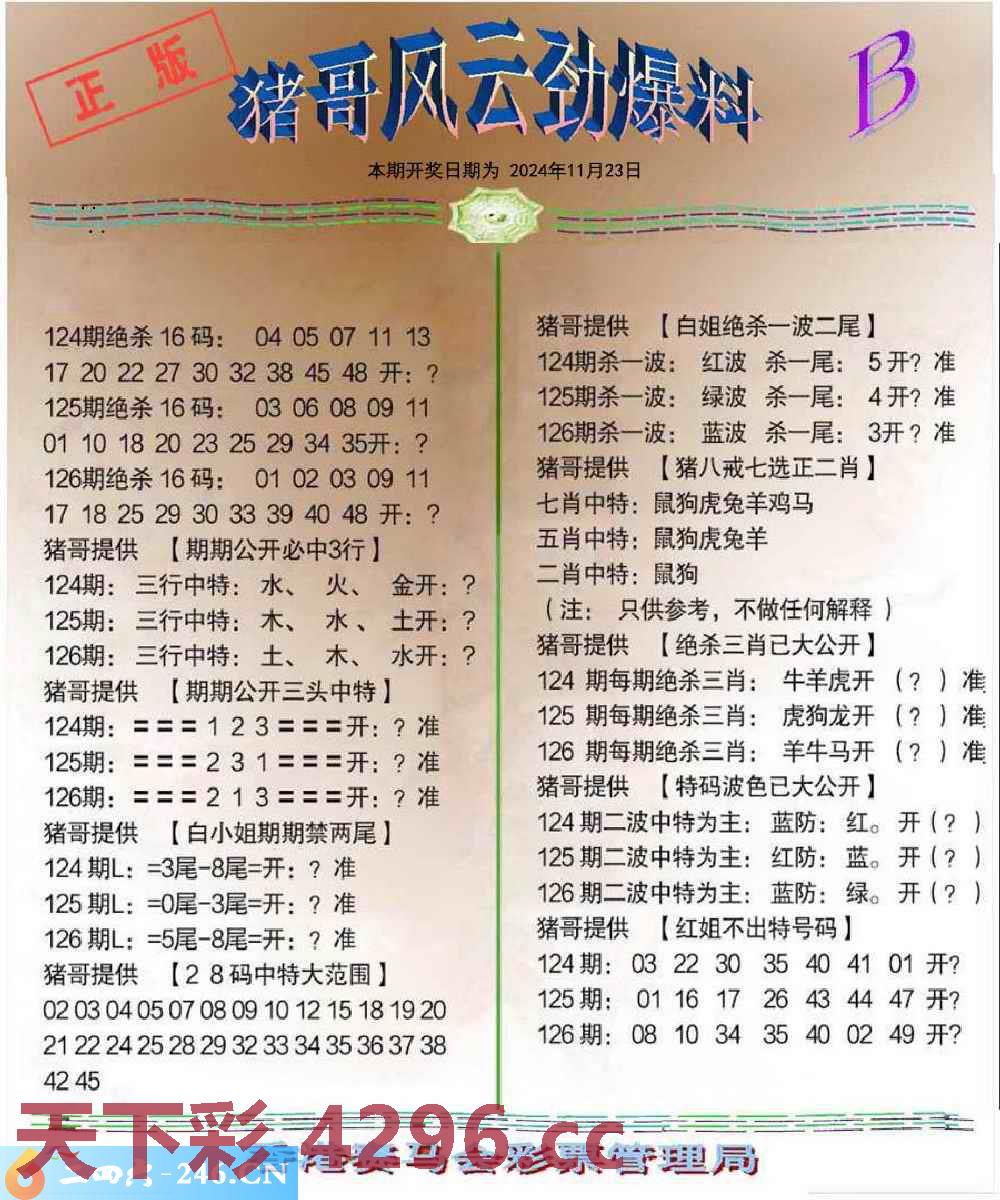 正版
猪哥风云劲爆料
B
本期开奖日期为 2024年11月23日
124期绝杀 16 码： 04 05 07 11 13
17 20 22 27 30 32 38 45 48 开：?
125期绝杀 16 码： 03 06 08 09 11
01 10 18 20 23 25 29 34 35开：?
126期绝杀 16 码： 01 02 03 09 11
17 18 25 29 30 33 39 40 48 开：?
猪哥提供 【期期公开必中3行】
124期： 三行中特： 水、 火、 金开：?
125期： 三行中特： 木、 水 、 土开：?
126期： 三行中特： 土、 木、 水开：?
猪哥提供 【期期公开三头中特】
124期：===1 2 3===开：? 准
125期：===2 3 1===开：? 准
126期：===2 1 3===开：? 准
猪哥提供 【白小姐期期禁两尾】
124 期L：=3尾-8尾=开：? 准
125 期L：=0尾-3尾=开：? 准
126 期L：=5尾-8尾=开：? 准
猪哥提供 【2 8 码中特大范围】
02 03 04 05 07 08 09 10 12 15 18 19 20
21 22 24 25 28 29 32 33 34 35 36 37 38
42 45
猪哥提供 【白姐绝杀一波二尾】
124期杀一波： 红波 杀一尾： 5 开? 准
125期杀一波： 绿波 杀一尾： 4 开? 准
126期杀一波： 蓝波 杀一尾： 3开 ? 准
猪哥提供 【猪八戒七选正二肖】
七肖中特：鼠狗虎兔羊鸡马
五肖中特：鼠狗虎兔羊
二肖中特：鼠狗
（注： 只供参考，不做任何解释 ）
猪哥提供 【绝杀三肖已大公开】
124 期每期绝杀三肖： 牛羊虎开 （? ）准
125 期每期绝杀三肖： 虎狗龙开 （? ）准
126 期每期绝杀三肖： 羊牛马开 （? ）准
猪哥提供 【特码波色已大公开】
124 期二波中特为主：蓝防：红。开（? ）
125 期二波中特为主：红防：蓝。开（? ）
126 期二波中特为主：蓝防：绿。开（? ）
猪哥提供 【红姐不出特号码】
124 期： 03 22 30 35 40 41 01 开?
125 期： 01 16 17 26 43 44 47 开?
126 期： 08 10 34 35 40 02 49 开?
天下彩.4296.cc
香港赛马会彩票管理局
二四六-246.CN